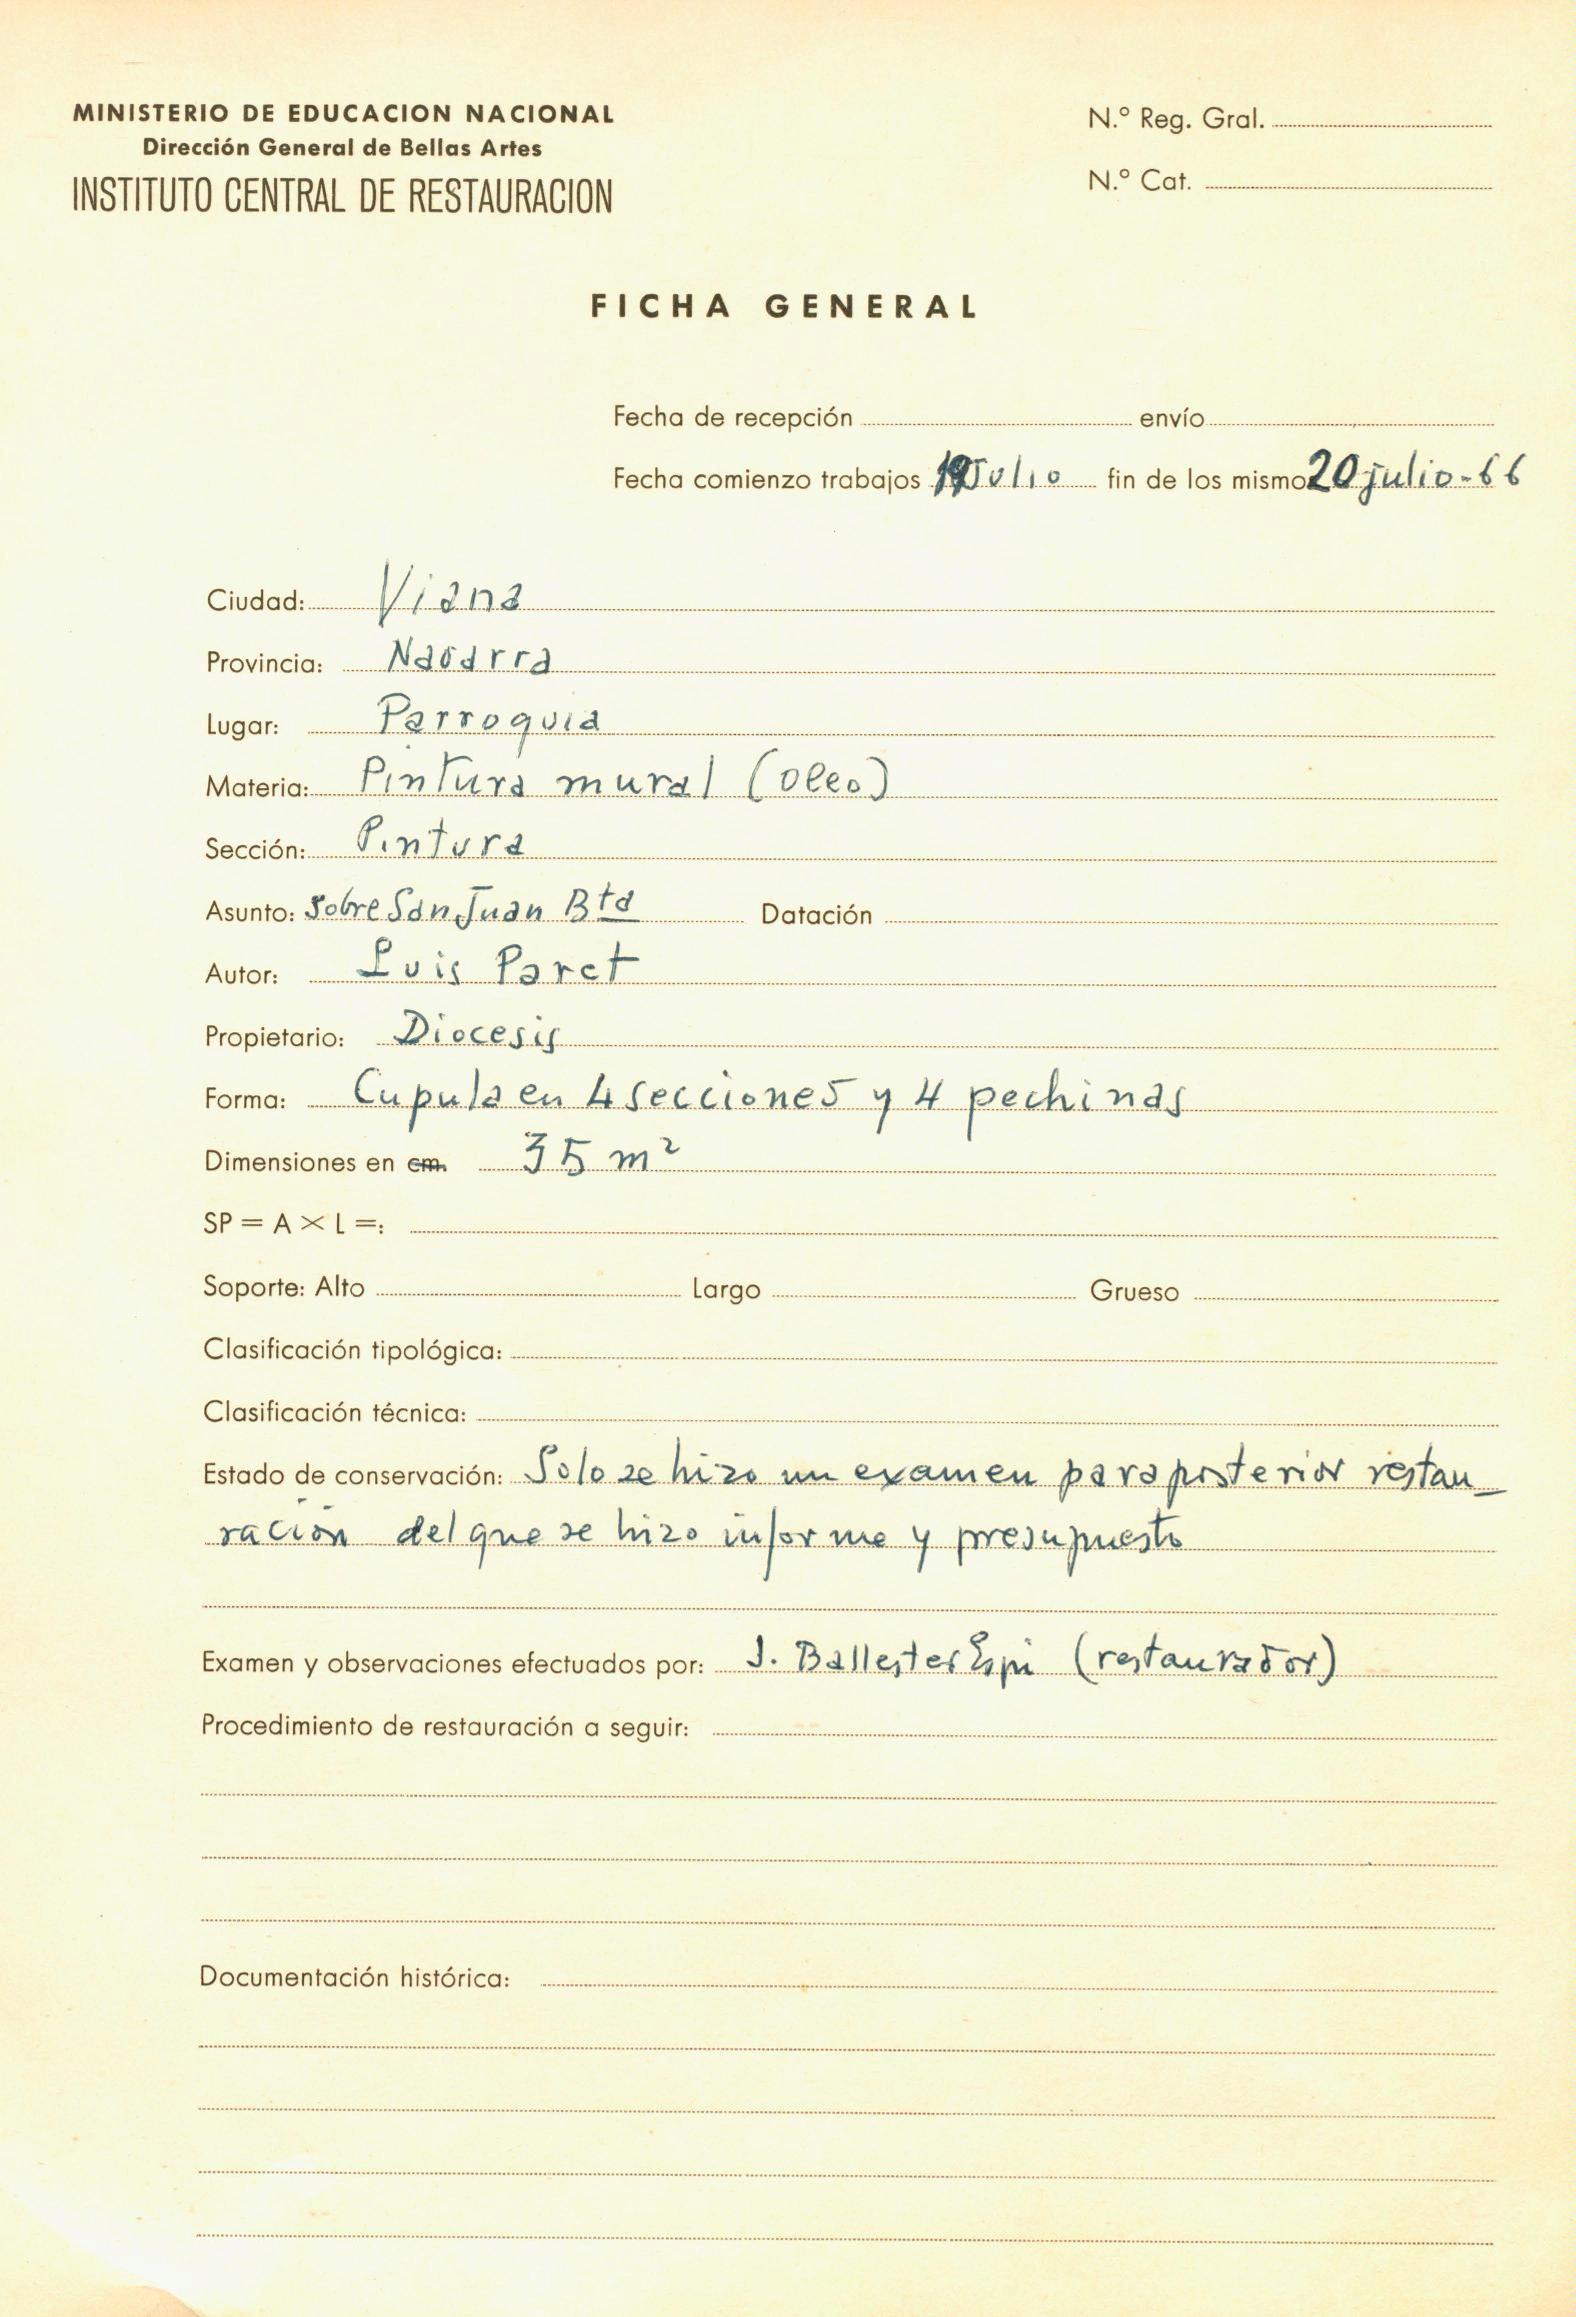 MINISTERIO DE EDUCACION NACIONAL
Dirección General de Bellas Artes
INSTITUTO CENTRAL DE RESTAURACION
N.º Reg. Gral.
N.º Cat.
FICHA GENERAL
Fecha de recepción envío
Fecha comienzo trabajos 19 Julio fin de los mismos 20 julio-66
Ciudad: Viana
Provincia: Navarra
Lugar: Parroquia
Materia: Pintura mural (oleo)
Sección: Pintura
Asunto: sobre San Juan Bta Datación
Autor: Luis Paret
Propietario: Diocesis
Forma: Cupula en 4 secciones y 4 pechinas
Dimensiones en cm. 35 m²
SP = A × L =:
Soporte: Alto Largo Grueso
Clasificación tipológica:
Clasificación técnica:
Estado de conservación: Solo se hizo un examen para posterior restau-
ración del que se hizo informe y presupuesto
Examen y observaciones efectuados por: J. Ballester Espi (restaurador)
Procedimiento de restauración a seguir:
Documentación histórica: